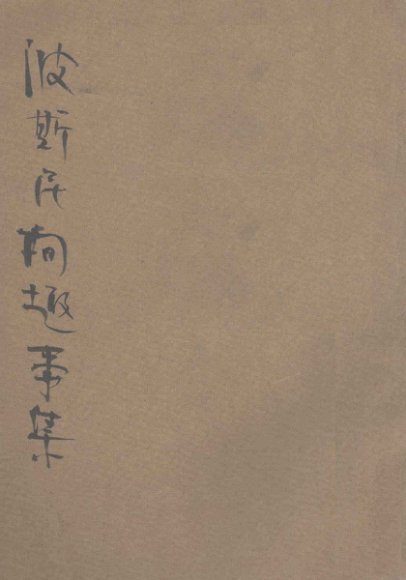 波斯民间趣事集